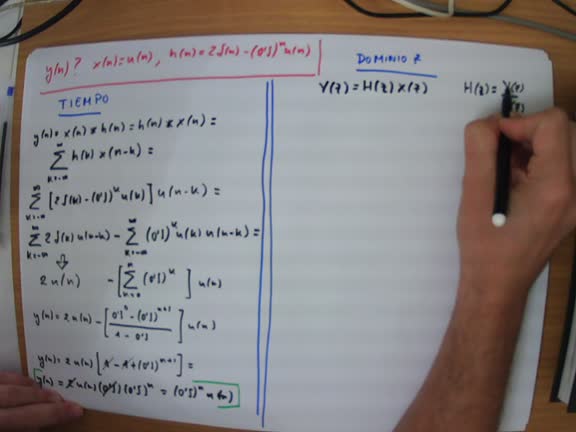 y(n)? x(n)=u(n), h(n)=2δ(n)-(0'5)^n u(n)
TIEMPO
y(n)= x(n) * h(n) = h(n) * x(n) =
∑_{k=-∞}^{∞} h(k) x(n-k) =
∑_{k=-∞}^{∞} [2δ(k)-(0'5)^k u(k)] u(n-k) =
∑_{k=-∞}^{∞} 2δ(k) u(n-k) - ∑_{k=-∞}^{∞} (0'5)^k u(k) u(n-k) =
⇩
2u(n) - [∑_{k=0}^{n} (0'5)^k ] u(n)
y(n) = 2u(n) - [(0'5^0 - (0'5)^{n+1})/(1 - 0'5)] u(n)
y(n) = 2u(n) [1-1+(0'5)^{n+1}] =
y(n) = 2u(n)(0'5)(0'5)^n = (0'5)^n u(n)
DOMINIO z
Y(z) = H(z) X(z) H(z) = Y(z)